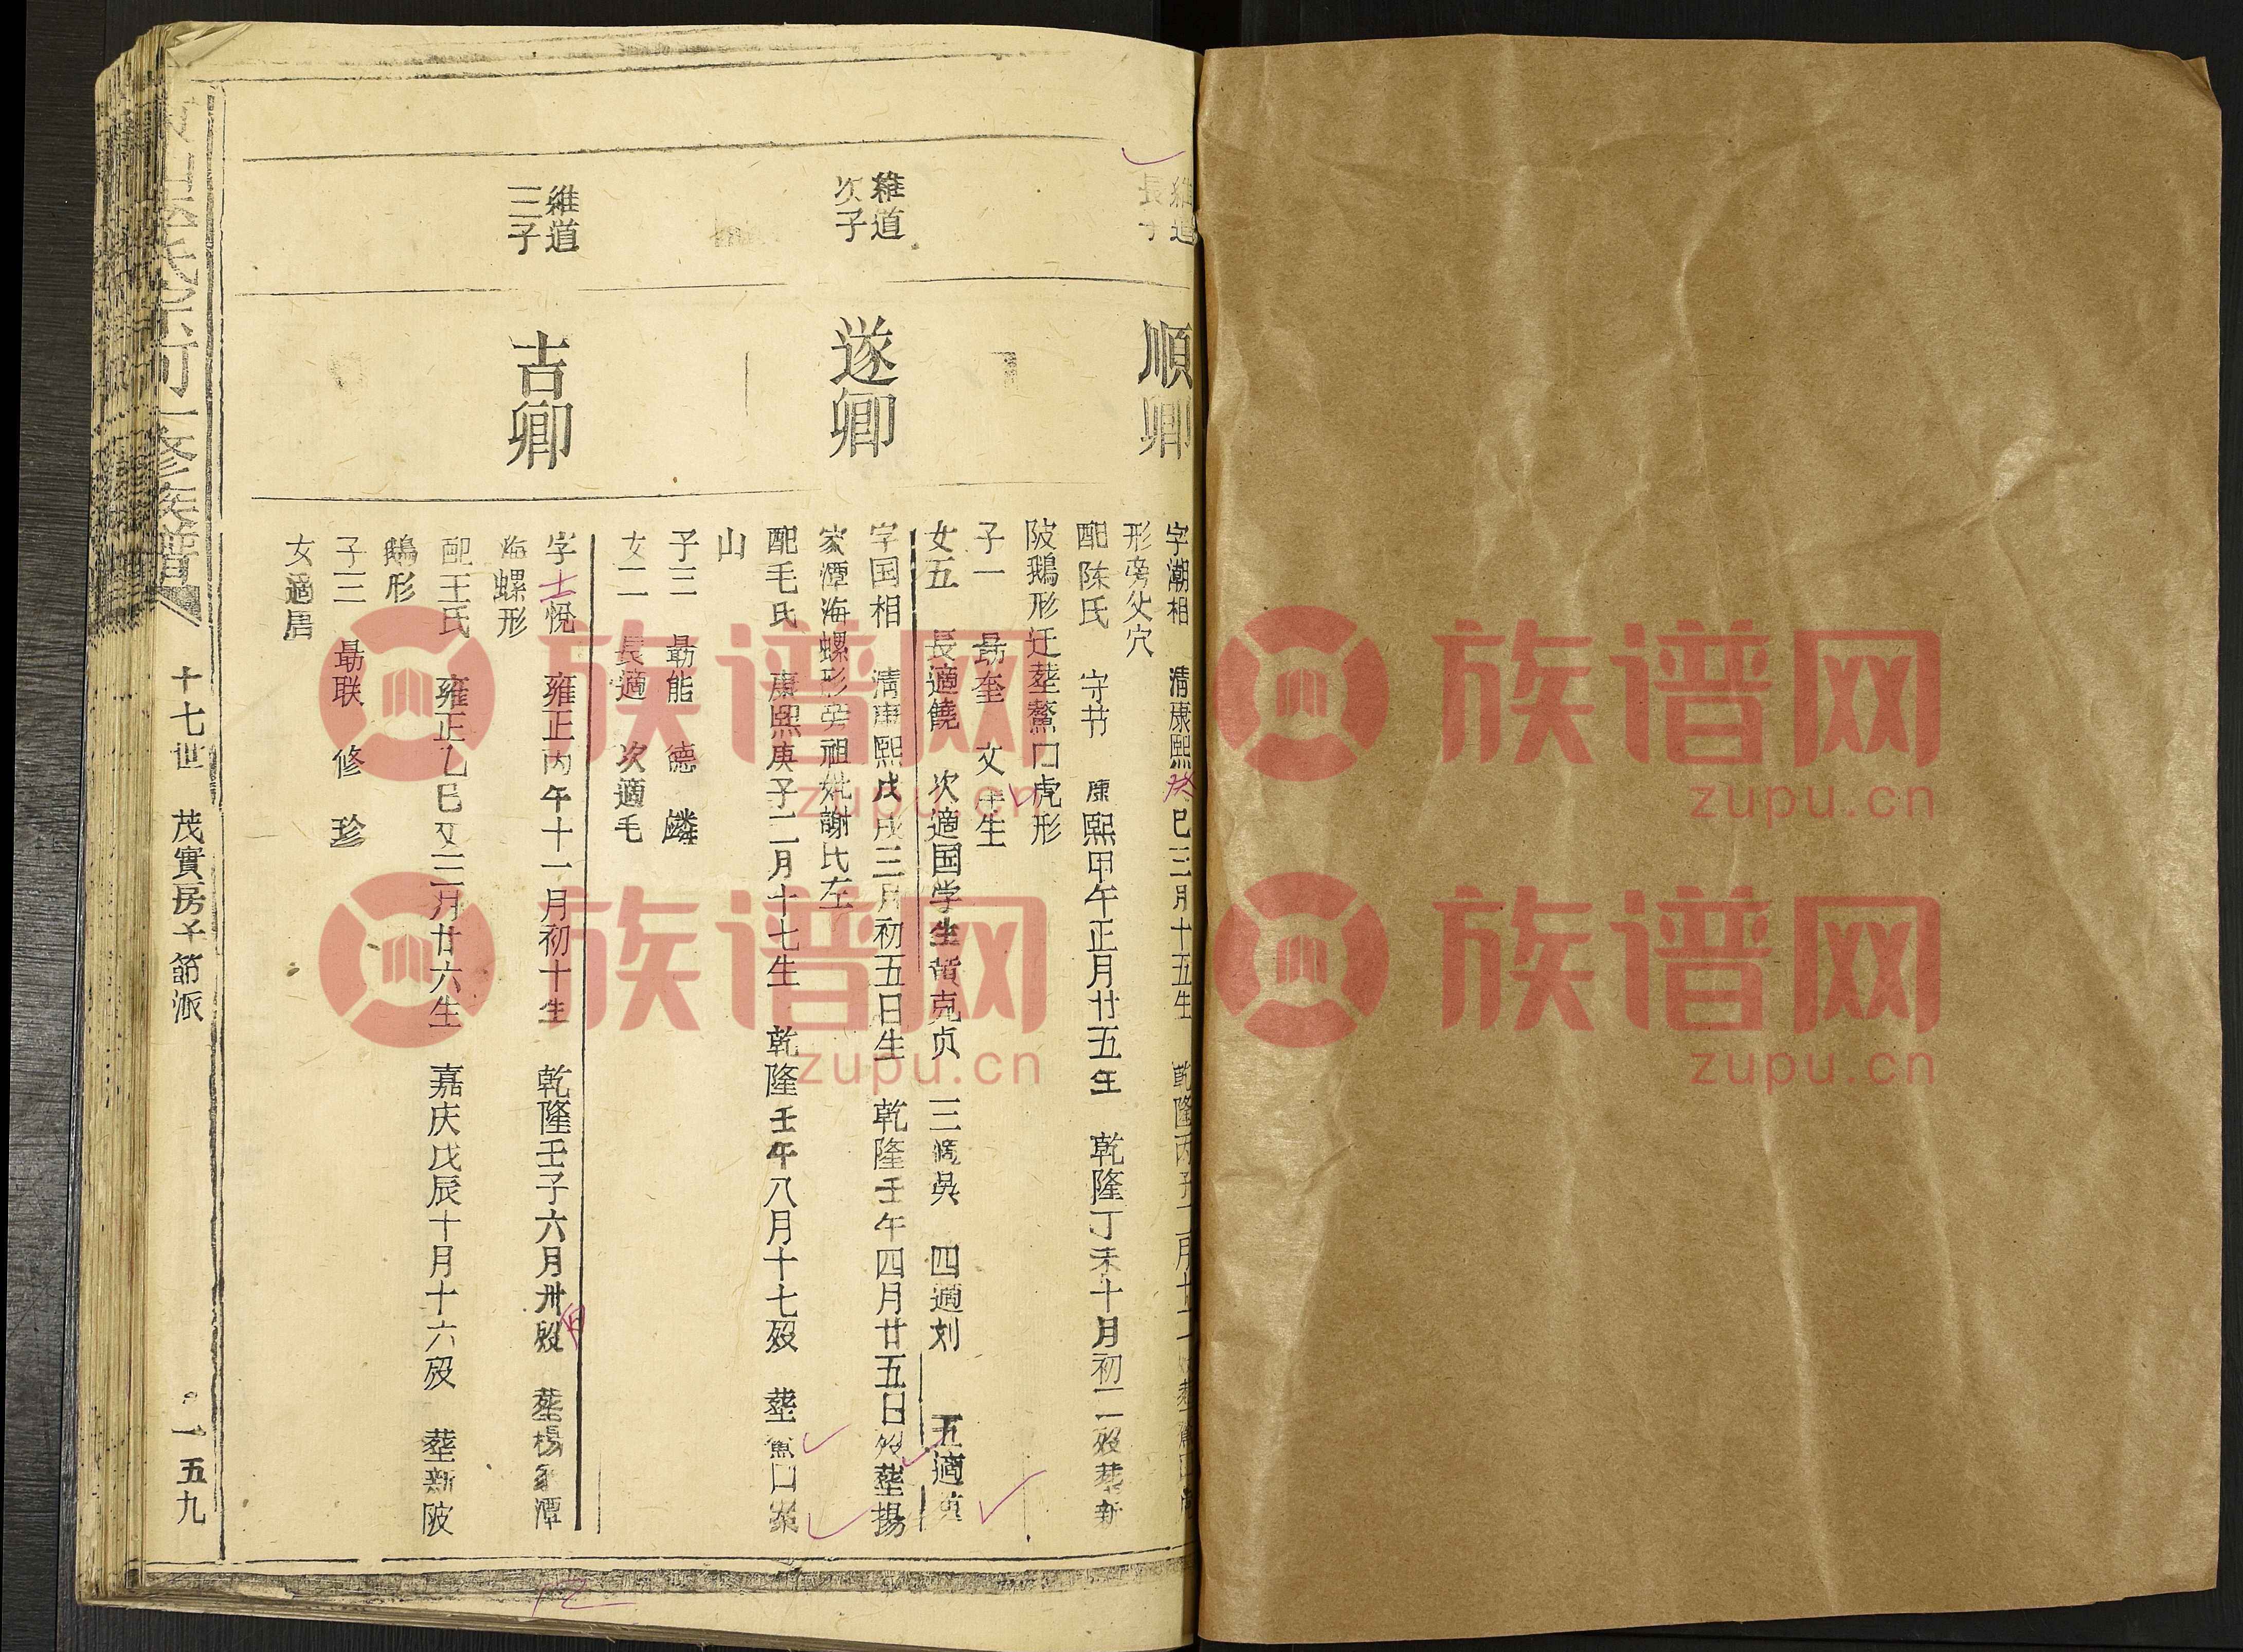 維道
長子
順卿
字潮相　清康熙癸巳三月十五生　乾隆丙子
形旁父穴
配陈氏　守节　康熙甲午正月廿五生　乾隆丁未十月初二殁葬新
陂鵝形迁葬鰲口虎形
子一　勗奎　文生
女五　長適饒　次適国学生黃克贞　三適吳　四適刘　五適
維道
次子
遂卿
字国相　清康熙戊戌三月初五日生　乾隆壬午四月廿五日殁葬揚
家潭海螺形旁祖妣謝氏左
配毛氏　康熙庚子二月十七生　乾隆壬午八月十七殁　葬魚口寨
山
子三　勗能　德　麟
女二　長適　次適毛
維道
三子
吉卿
字士悅　雍正丙午十一月初十生　乾隆壬子六月卅殁　葬楊家潭
海螺形
配王氏　雍正乙巳又三月廿六生　嘉庆戊辰十月十六殁　葬新陂
鵝形
子三　勗联　修　珍
女適周
氏宗祠一修族譜
十七世　茂實房子節派
一五九
族谱网
zupu.cn
族谱网
zupu.cn
族谱网
zupu.cn
族谱网
zupu.cn